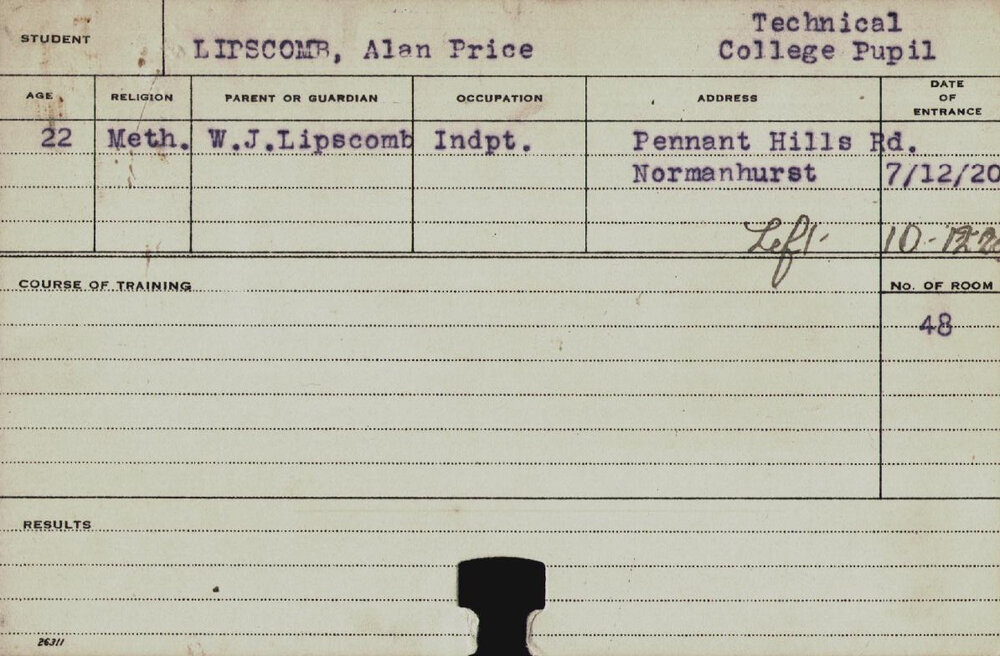 STUDENT LIPSCOMB, Alan Price Technical College Pupil
AGE RELIGION PARENT OR GUARDIAN OCCUPATION ADDRESS DATE OF ENTRANCE
22 Meth. W.J.Lipscomb Indpt. Pennant Hills Rd.
Normanhurst 7/12/20
Left 10-12-
COURSE OF TRAINING No. OF ROOM
48
RESULTS
26311